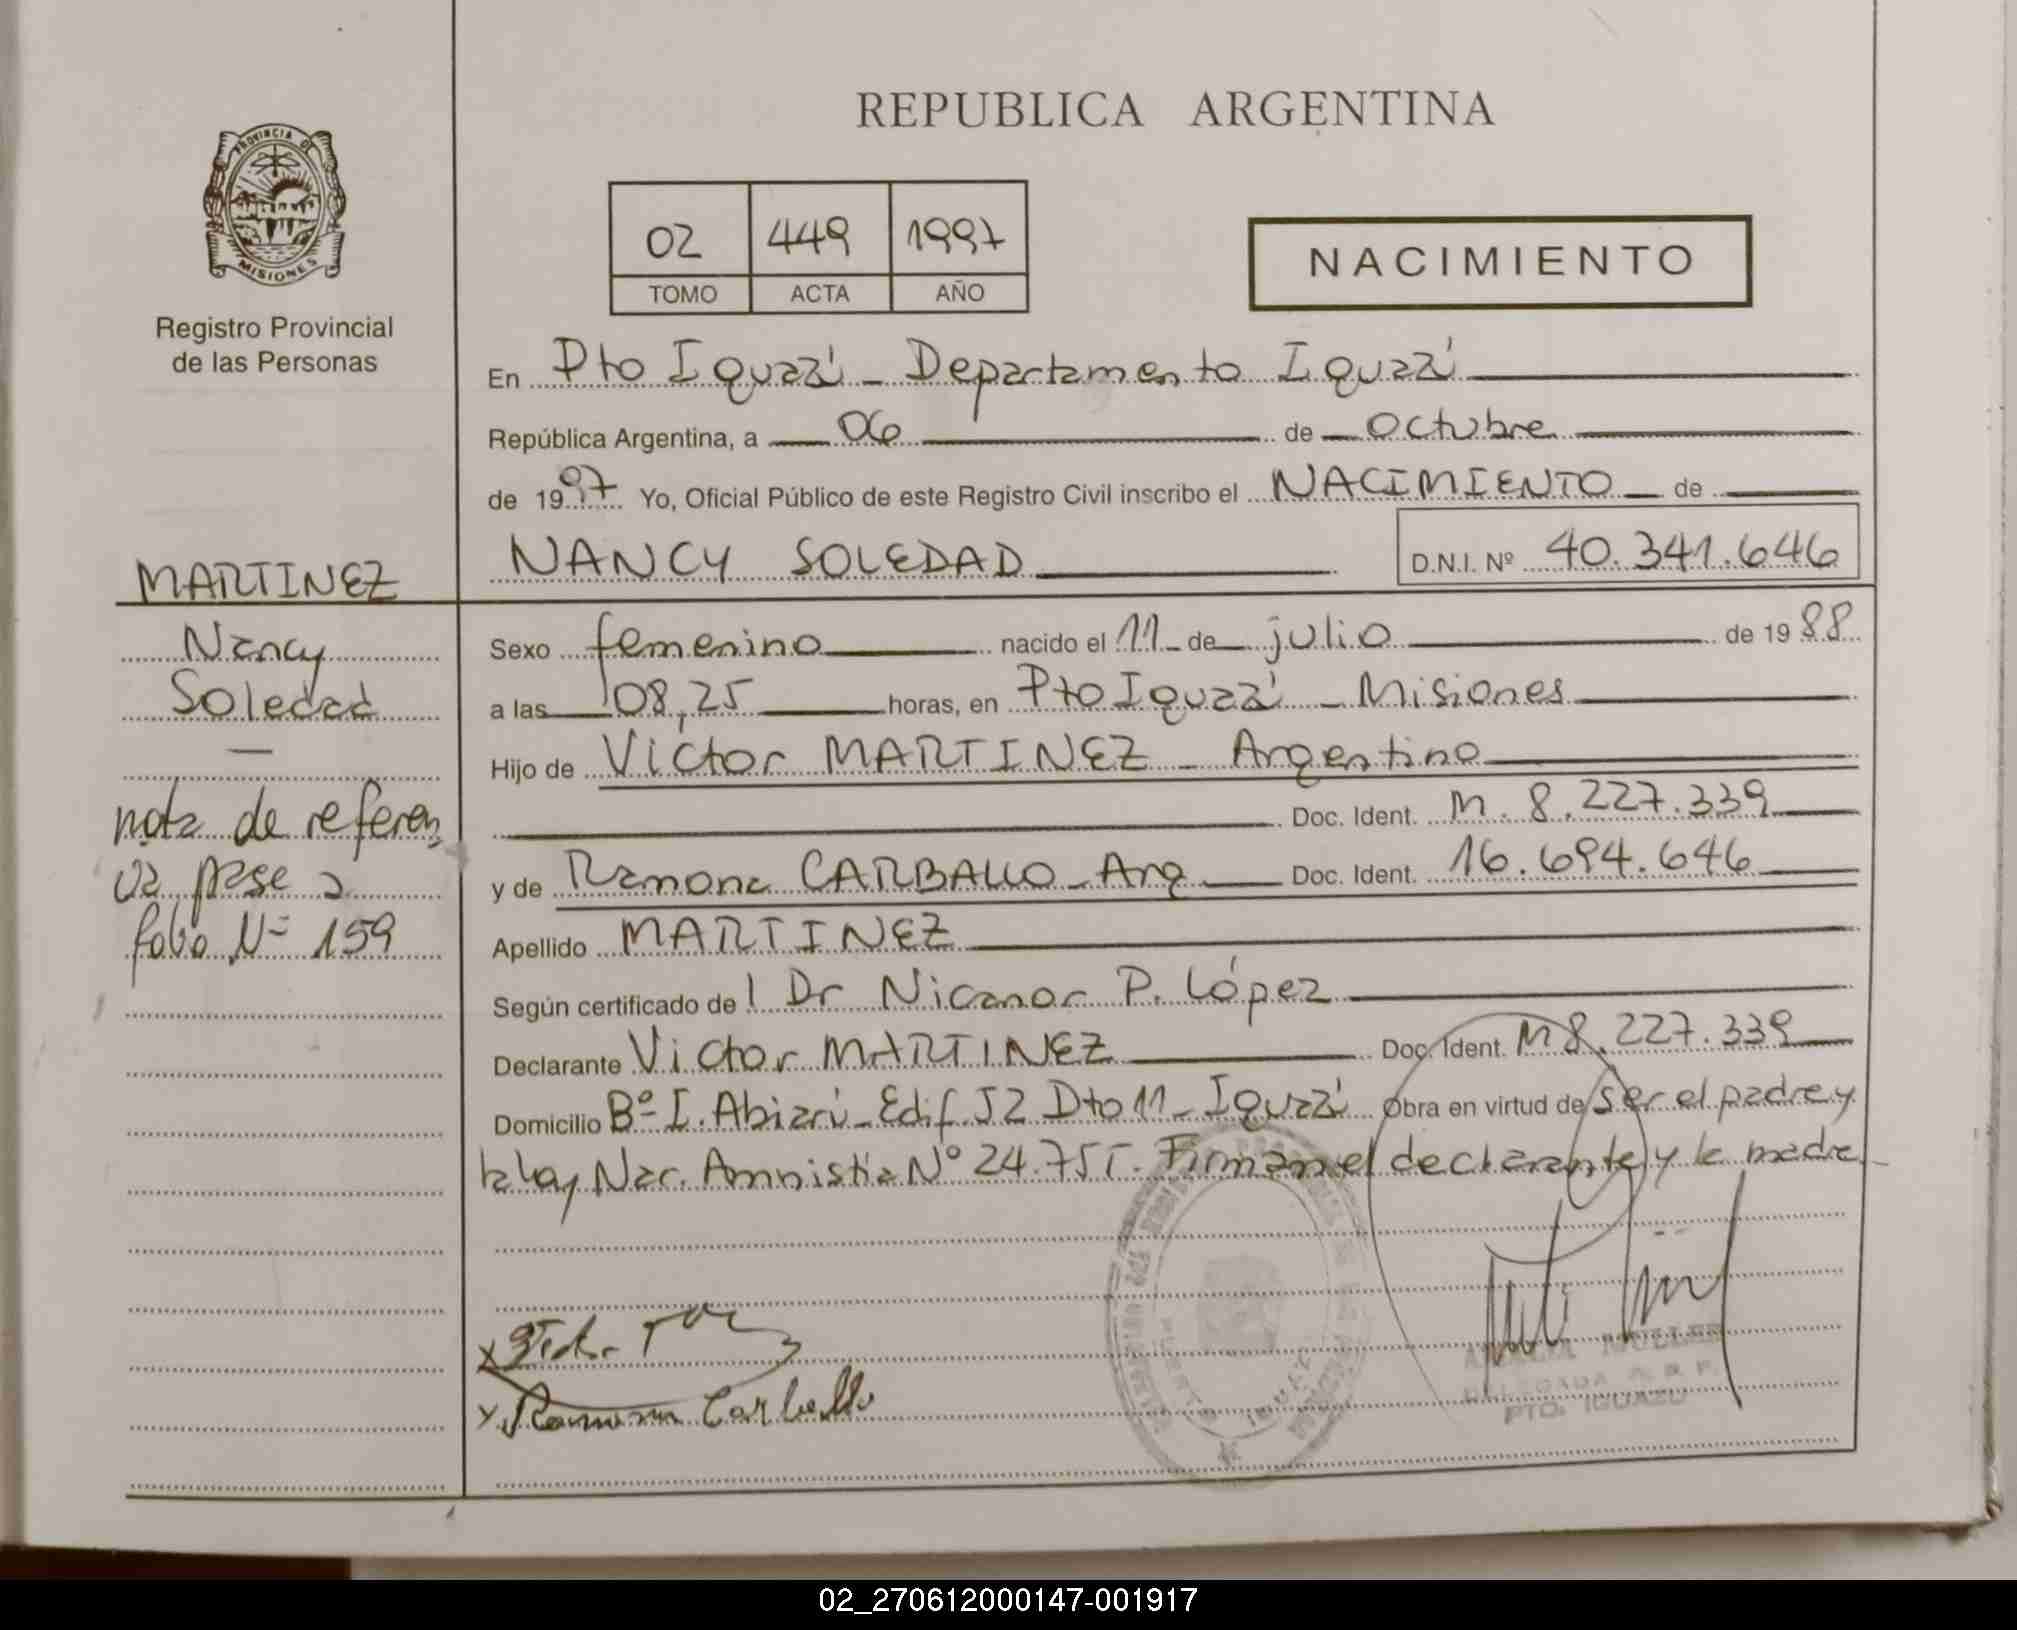 REPUBLICA ARGENTINA
PROVINCIA DE
MISIONES
Registro Provincial
de las Personas
02 449 1997
TOMO ACTA AÑO
NACIMIENTO
En Pto Iguazú _ Departamento Iguazú
República Argentina, a 06 de Octubre
de 1997 Yo, Oficial Público de este Registro Civil inscribo el NACIMIENTO de
NANCY SOLEDAD D.N.I. Nº 40.341.646
MARTINEZ
Nancy
Soledad
—
nota de referen
cia pase a
folio Nº 159
Sexo femenino nacido el 11 de julio de 1988
a las 08,25 horas, en Pto Iguazú _ Misiones
Hijo de Victor MARTINEZ _ Argentino
Doc. Ident. M. 8.227.339
y de Ramona CARBALLO _ Arg Doc. Ident. 16.694.646
Apellido MARTINEZ
Según certificado de Dr Nicanor P. López
Declarante Victor MARTINEZ Doc. Ident. M 8.227.339
Domicilio Bº I. Abiarú _ Edif 52 Dto 11 _ Iguazú Obra en virtud de ser el padre y
la ley Nac. Amnistia Nº 24.755. Firman el declarante y la madre
x
x Ramona Carballo
MULLER
DELEGADA R. P. P.
PTO. IGUAZU
02_270612000147-001917